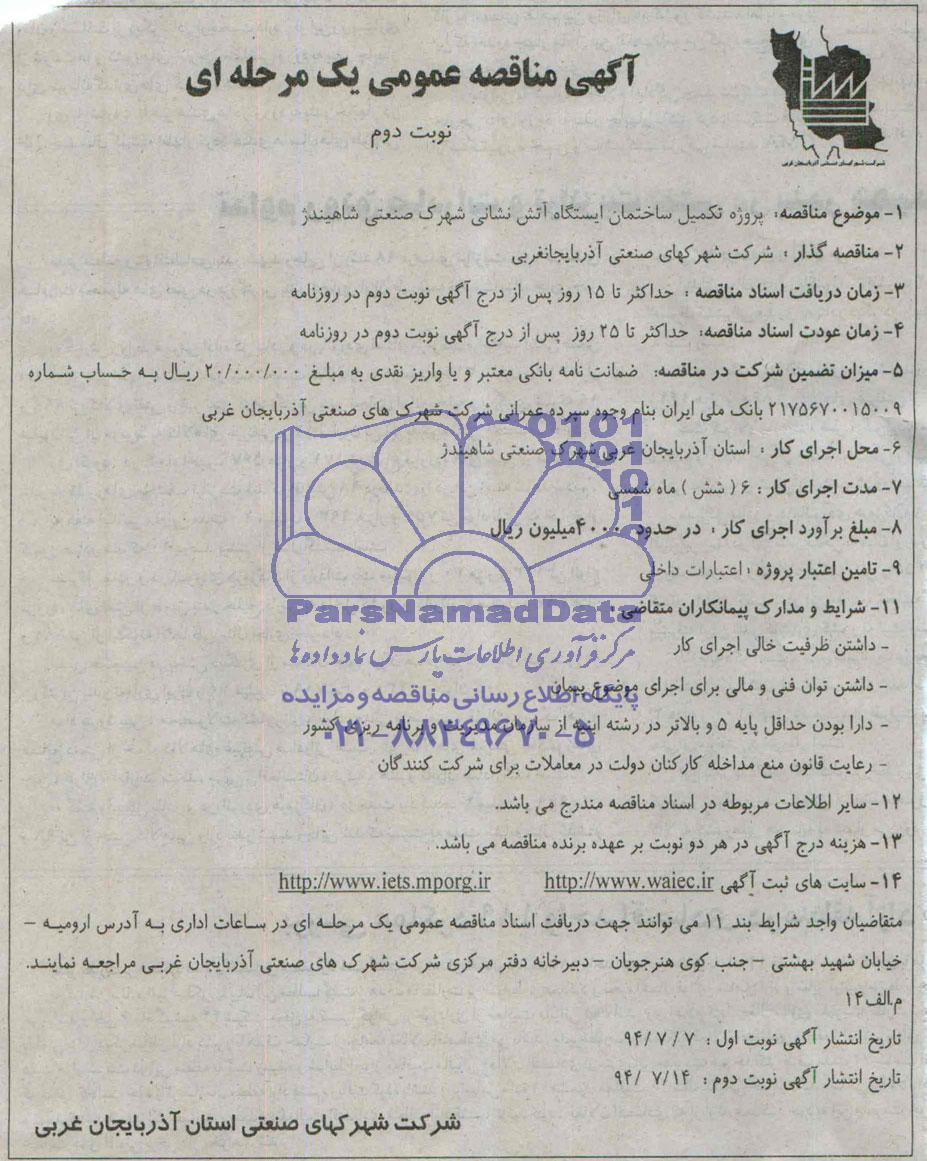 آگهی مناقصه عمومی یک مرحله ای
نوبت دوم
شرکت شهرکهای صنعتی آذربایجان غربی
۱- موضوع مناقصه: پروژه تکمیل ساختمان ایستگاه آتش نشانی شهرک صنعتی شاهیندژ
۲- مناقصه گذار : شرکت شهرکهای صنعتی آذربایجانغربی
۳- زمان دریافت اسناد مناقصه : حداکثر تا ۱۵ روز پس از درج آگهی نوبت دوم در روزنامه
۴- زمان عودت اسناد مناقصه: حداکثر تا ۲۵ روز پس از درج آگهی نوبت دوم در روزنامه
۵- میزان تضمین شرکت در مناقصه: ضمانت نامه بانکی معتبر و یا واریز نقدی به مبلغ ۲۰/۰۰۰/۰۰۰ ریال به حساب شماره
۲۱۷۵۶۷۰۰۱۵۰۰۹ بانک ملی ایران بنام وجوه سپرده عمرانی شرکت شهرک های صنعتی آذربایجان غربی
۶- محل اجرای کار : استان آذربایجان غربی شهرک صنعتی شاهیندژ
۷- مدت اجرای کار : ۶ ( شش ) ماه شمسی
۸- مبلغ برآورد اجرای کار : در حدود ۴۰۰۰میلیون ریال
۹- تامین اعتبار پروژه : اعتبارات داخلی
۱۱- شرایط و مدارک پیمانکاران متقاضی :
ParsNamadData
مرکز فرآوری اطلاعات پارس نماد داده ها
- داشتن ظرفیت خالی اجرای کار
- داشتن توان فنی و مالی برای اجرای موضوع پیمان
پایگاه اطلاع رسانی مناقصه و مزایده
- دارا بودن حداقل پایه ۵ و بالاتر در رشته ابنیه از سازمان مدیریت و برنامه ریزی کشور
۰۲۱-۸۸۳۴۹۶۷۰-۵
- رعایت قانون منع مداخله کارکنان دولت در معاملات برای شرکت کنندگان
۱۲- سایر اطلاعات مربوطه در اسناد مناقصه مندرج می باشد.
۱۳- هزینه درج آگهی در هر دو نوبت بر عهده برنده مناقصه می باشد.
۱۴- سایت های ثبت آگهی http://www.waiec.ir http://www.iets.mporg.ir
متقاضیان واجد شرایط بند ۱۱ می توانند جهت دریافت اسناد مناقصه عمومی یک مرحله ای در ساعات اداری به آدرس ارومیه -
خیابان شهید بهشتی - جنب کوی هنرجویان - دبیرخانه دفتر مرکزی شرکت شهرک های صنعتی آذربایجان غربی مراجعه نمایند.
م.الف۱۴
تاریخ انتشار آگهی نوبت اول : ۹۴/۷/۷
تاریخ انتشار آگهی نوبت دوم : ۹۴/ ۷/۱۴
شرکت شهرکهای صنعتی استان آذربایجان غربی